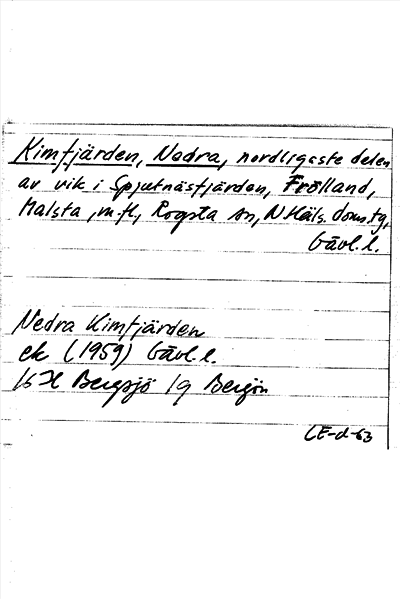 Kimfjärden, Nedra, nordligaste delen
av vik i Spjutnäsfjärden, Frölland,
Malsta, m.fl., Rogsta sn, N Häls. doms.tg,
Gävl.l.
Nedra Kimfjärden
ek (1959) Gävl.l.
16H Bergsjö 1g Bergön
CE-d-63